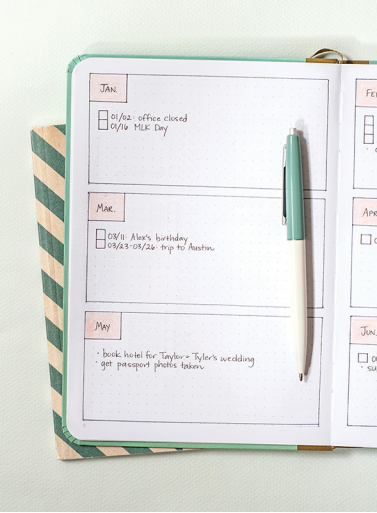 JAN.
01/02: office closed
01/16 MLK Day
MAR.
03/11: Alex's birthday
03/23-03/26: trip to Austin
MAY
· book hotel for Taylor + Tyler's wedding
· get passport photos taken